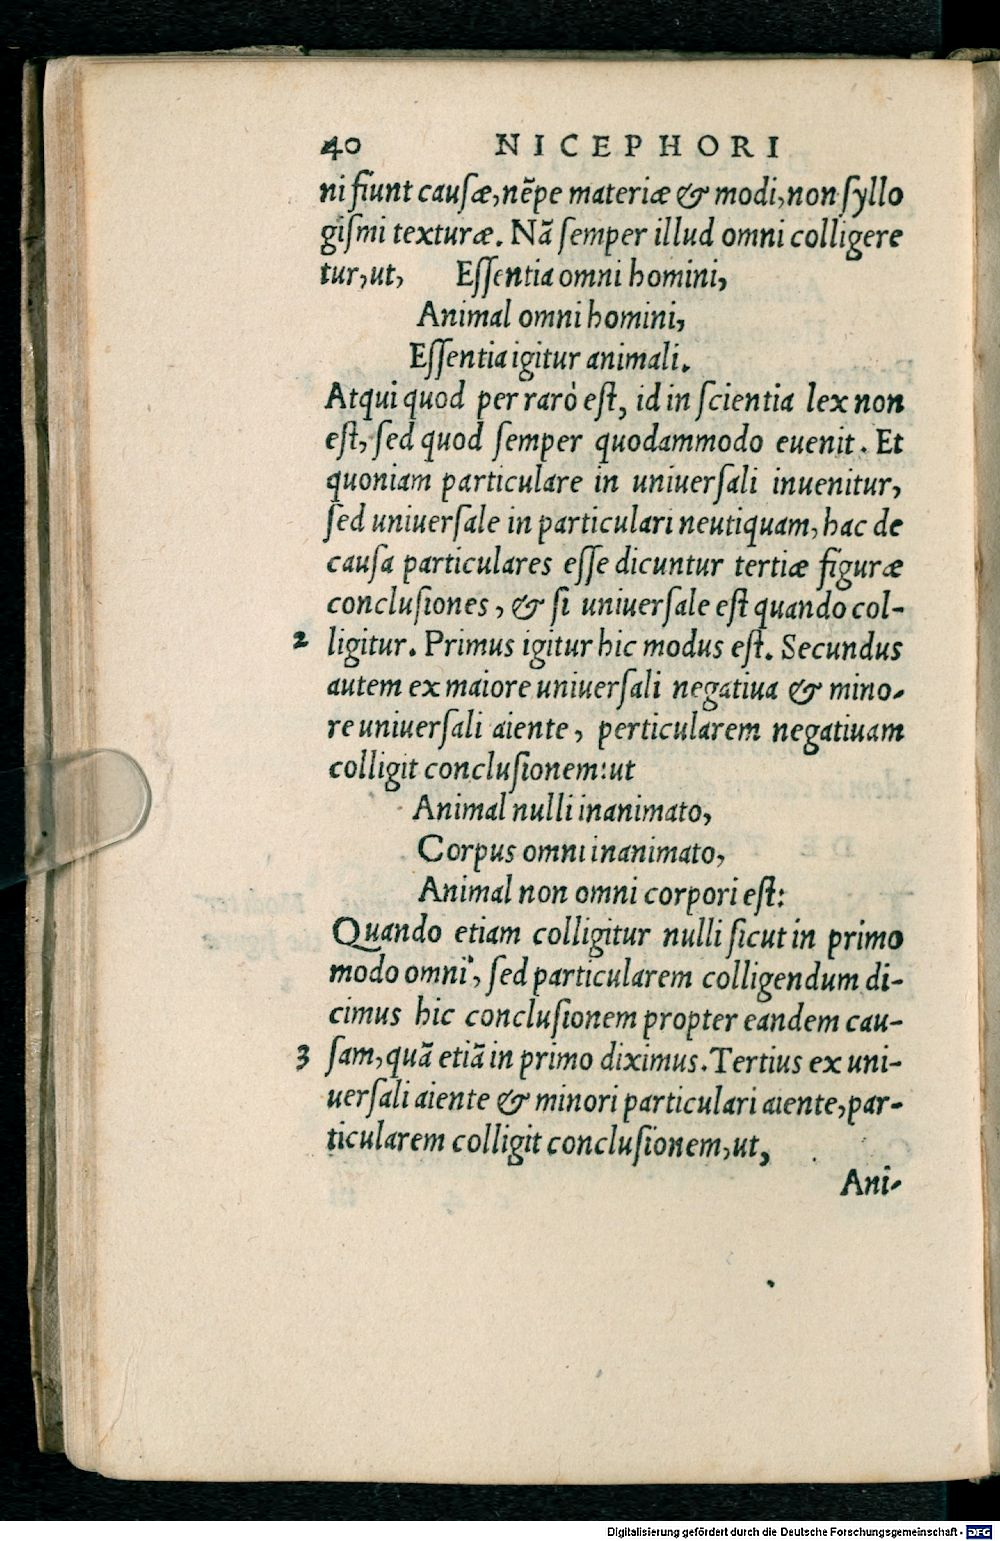 40 NICEPHORI
ni fiunt causæ, nẽpe materiæ & modi, non syllo
gismi texturæ. Nã semper illud omni colligere
tur, ut, Essentia omni homini,
Animal omni homini,
Essentia igitur animali.
Atqui quod per rarò est, id in scientia lex non
est, sed quod semper quodammodo euenit. Et
quoniam particulare in uniuersali inuenitur,
sed uniuersale in particulari neutiquam, hac de
causa particulares esse dicuntur tertiæ figuræ
conclusiones, & si uniuersale est quando col-
2 ligitur. Primus igitur hic modus est. Secundus
autem ex maiore uniuersali negatiua & mino-
re uniuersali aiente, perticularem negatiuam
colligit conclusionem: ut
Animal nulli inanimato,
Corpus omni inanimato,
Animal non omni corpori est:
Quando etiam colligitur nulli sicut in primo
modo omni, sed particularem colligendum di-
cimus hic conclusionem propter eandem cau-
3 sam, quã etiã in primo diximus. Tertius ex uni-
uersali aiente & minori particulari aiente, par-
ticularem colligit conclusionem, ut,
Ani-
Digitalisierung gefördert durch die Deutsche Forschungsgemeinschaft - DFG